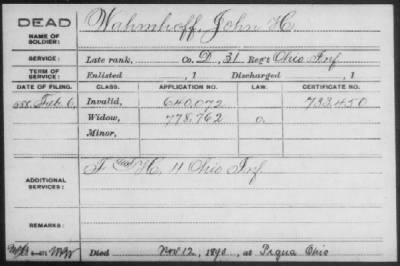 DEAD
NAME OF SOLDIER: Wahmhoff, John H.
SERVICE: Late rank, Co. D, 31 Reg't Ohio Inf.
TERM OF SERVICE: Enlisted , 1 Discharged , 1
DATE OF FILING. CLASS. APPLICATION NO. LAW. CERTIFICATE NO.
Feb. 6, Invalid, 640,072 733,450
Widow, 778,762 o.
Minor,
ADDITIONAL SERVICES: F H. 11 Ohio Inf.
REMARKS:
Died Nov 12, 1890, at Piqua Ohio